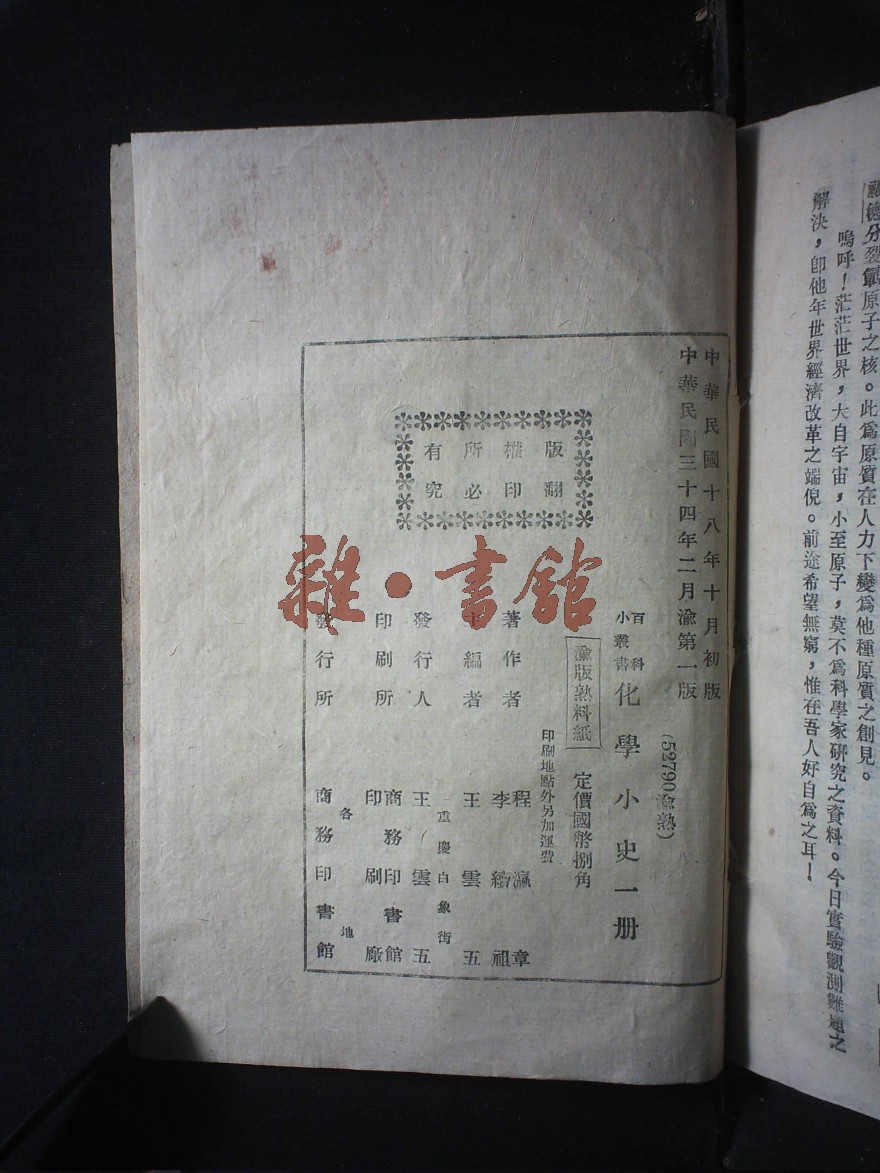 德分裂氮原子之核。此爲原質在人力下變爲他種原質之創見。
嗚呼！茫茫世界，大自宇宙，小至原子，莫不爲科學家研究之資料。今日實驗觀測難題之
解決，卽他年世界經濟改革之端倪。前途希望無窮，惟在吾人好自爲之耳！
中華民國十八年十月初版
中華民國三十四年二月渝第一版
(52790渝熟)
百科
小叢書
化學小史一册
渝版熟料紙
定價國幣捌角
印刷地點外另加運費
版權所有
翻印必究
著作者
程瀛章
李續祖
主編者
王雲五
重慶白象街
發行人
王雲五
印刷所
商務印書館
印刷廠
發行所
各地
商務印書館
雜·書館